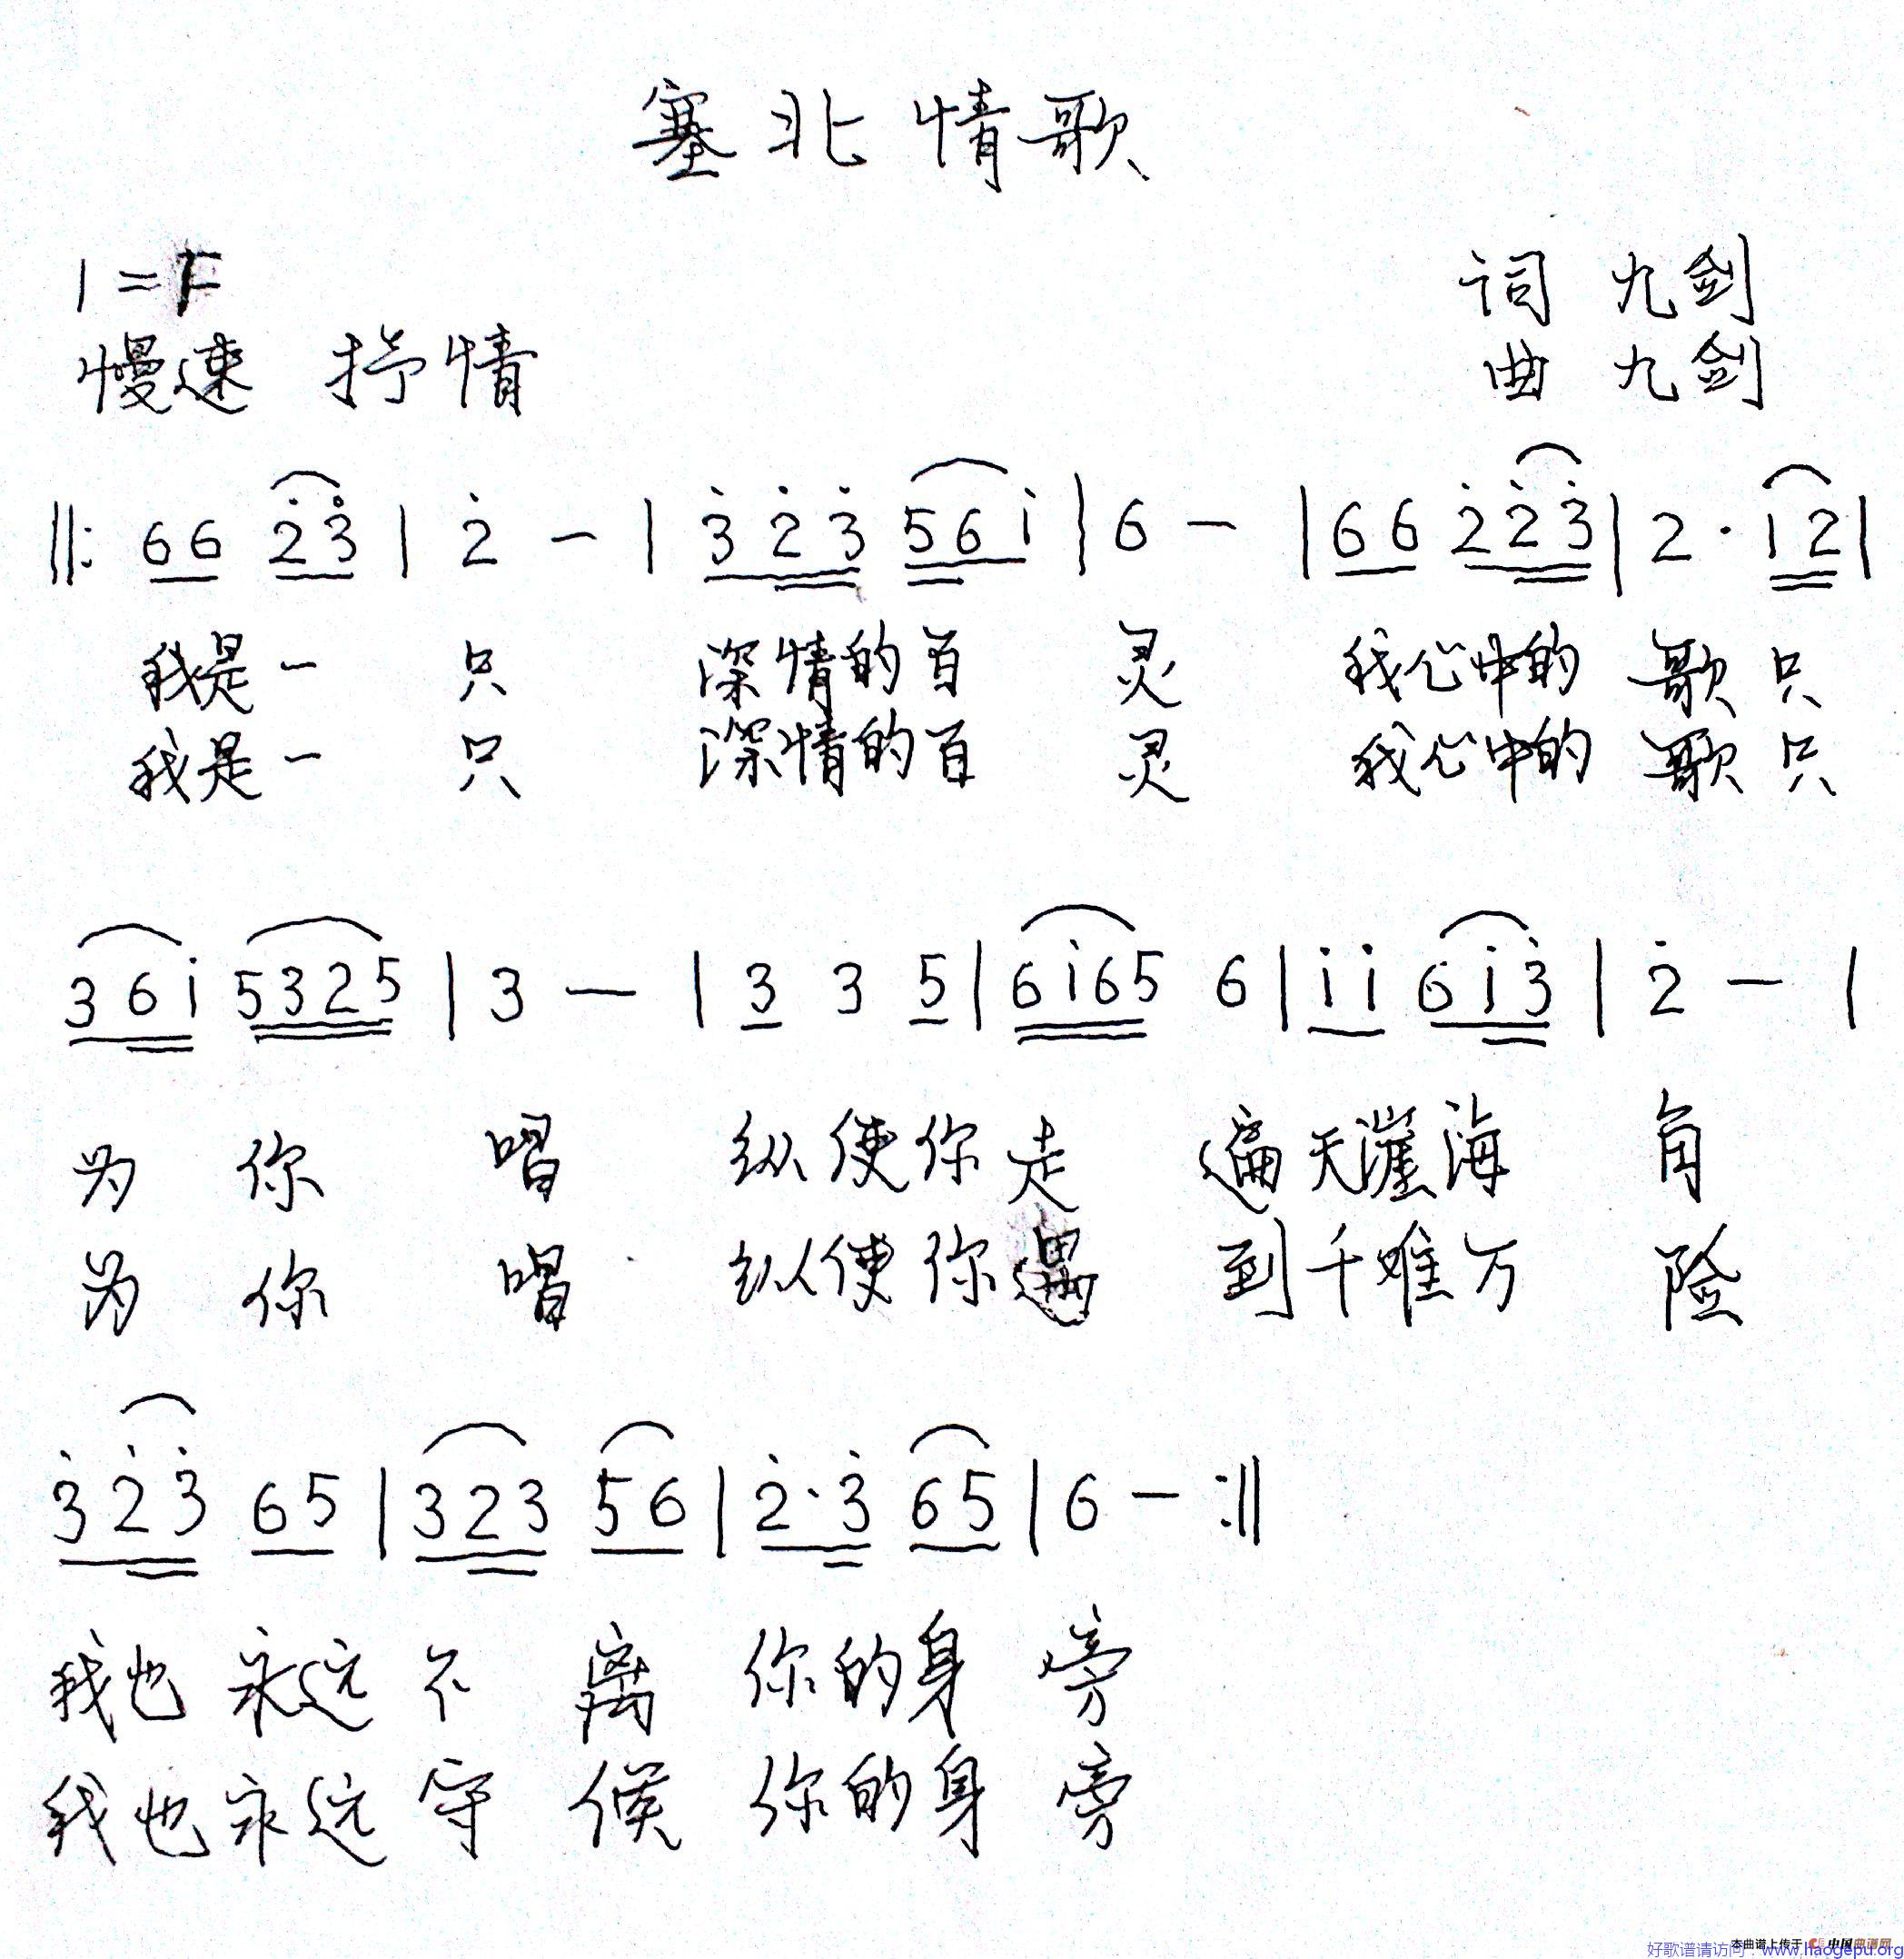 塞北情歌
1=F
词 九剑
慢速 抒情
曲 九剑
‖: 66 2̇3̇ | 2̇ － | 3̇2̇3̇ 561̇ | 6 － | 66 2̇2̇3̇ | 2 · 1̇2 |
我是一 只 深情的百 灵 我心中的 歌只
我是一 只 深情的百 灵 我心中的 歌只
361̇ 5325 | 3 － | 3 3 5 | 61̇65 6 | 1̇1̇ 61̇3̇ | 2̇ － |
为 你 唱 纵使你走 遍天涯海 角
为 你 唱 纵使你遇 到千难万 险
3̇2̇3̇ 65 | 323 56 | 2̇·3̇ 65 | 6 － :‖
我也永远不 离 你的身 旁
我也永远守 候 你的身 旁
本曲谱上传于 中国曲谱网
好歌谱请访问：www.haogepu.org